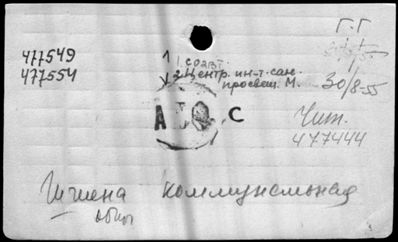 Г.Г
477549
477554
1 соавт.
2. Центр. ин-т. сан.
просвещ. М.
30/8-55
С
Чит.
477444
Гигиена коммунальная